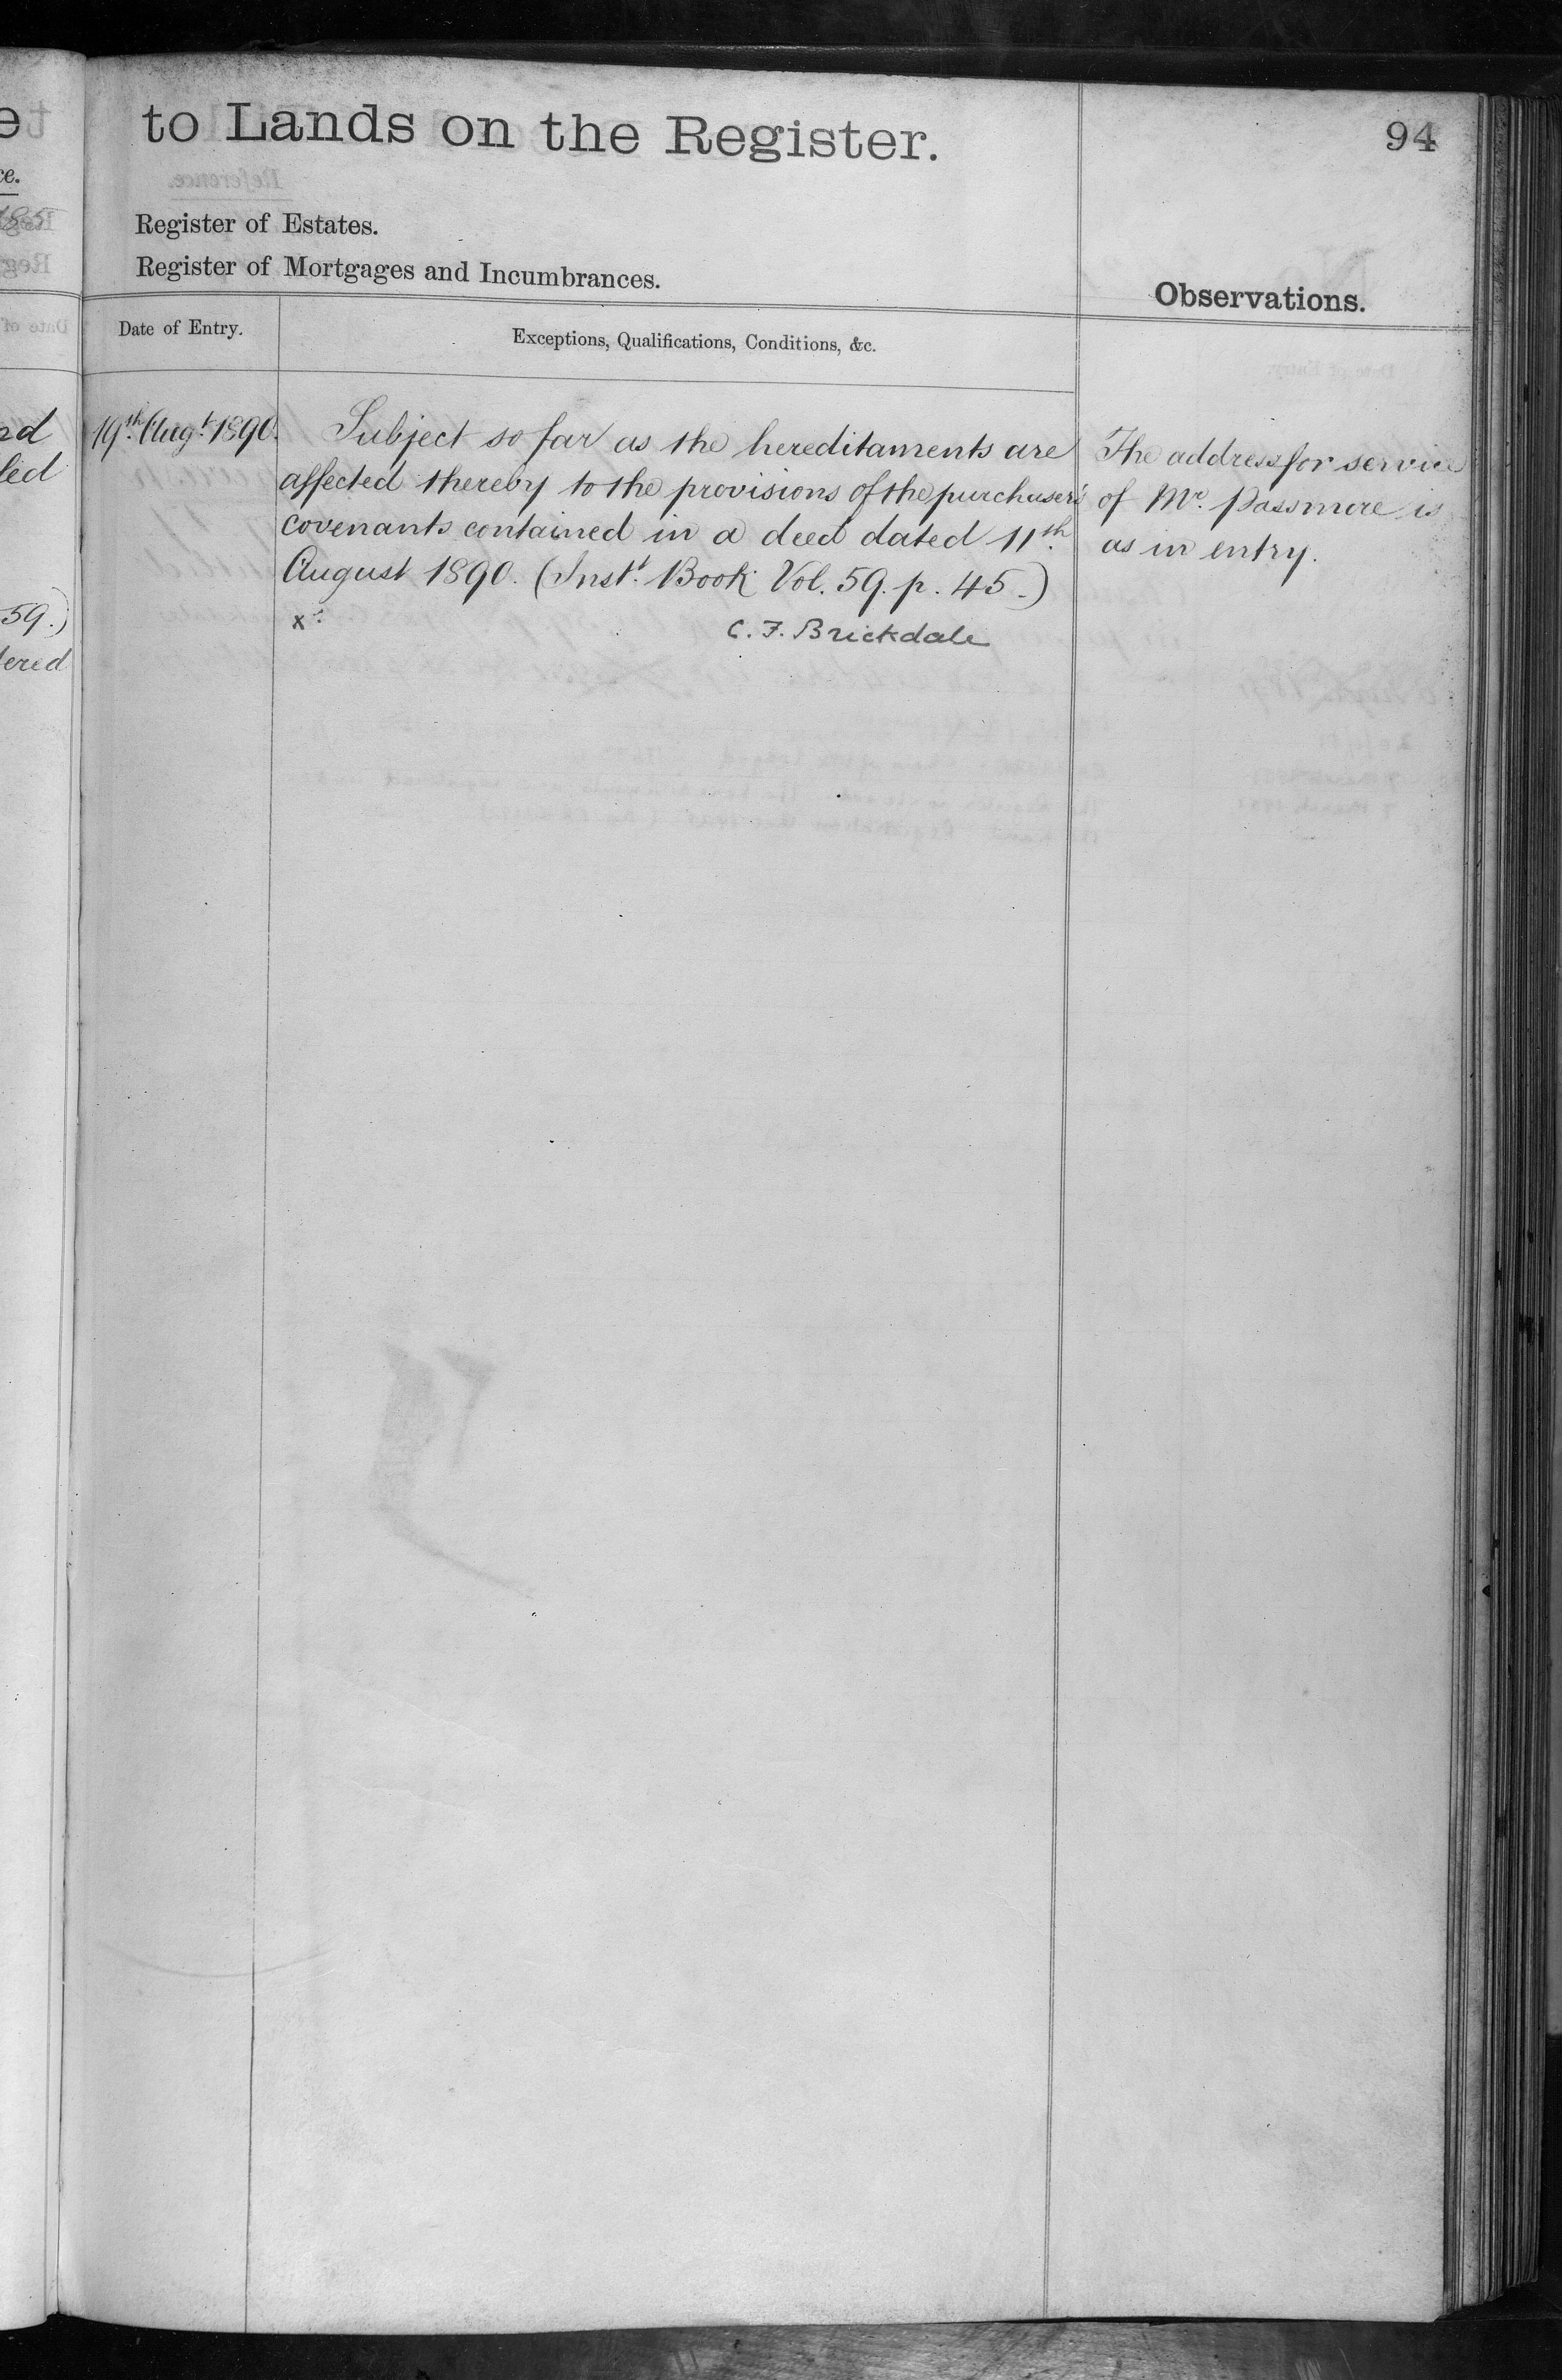 to Lands on the Register.
94
Register of Estates.
Register of Mortgages and Incumbrances.
Observations.
Date of Entry.
Exceptions, Qualifications, Conditions, &c.
19th. Augt. 1890.
Subject so far as the hereditaments are
affected thereby to the provisions of the purchaser's
covenants contained in a deed dated 11th.
August 1890. (Inst. Book Vol. 59. p. 45.)
x
C. F. Brickdale
The address for service
of Mr. Passmore is
as in entry.
59.)